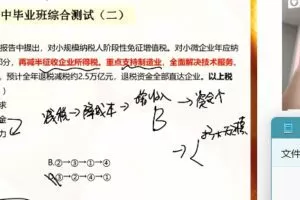 中毕业班综合测试（二）
报告中提出，对小规模纳税人阶段性免征增值税。对小微企业年应纳
部分，再减半征收企业所得税。重点支持制造业，全面解决技术服务、
，预计全年退税减税约2.5万亿元，退税资金全部直达企业。以上税
求
金
力
减税→降成本→增收入→资金↑
B
B.②→③→①→④
③→②→④→①